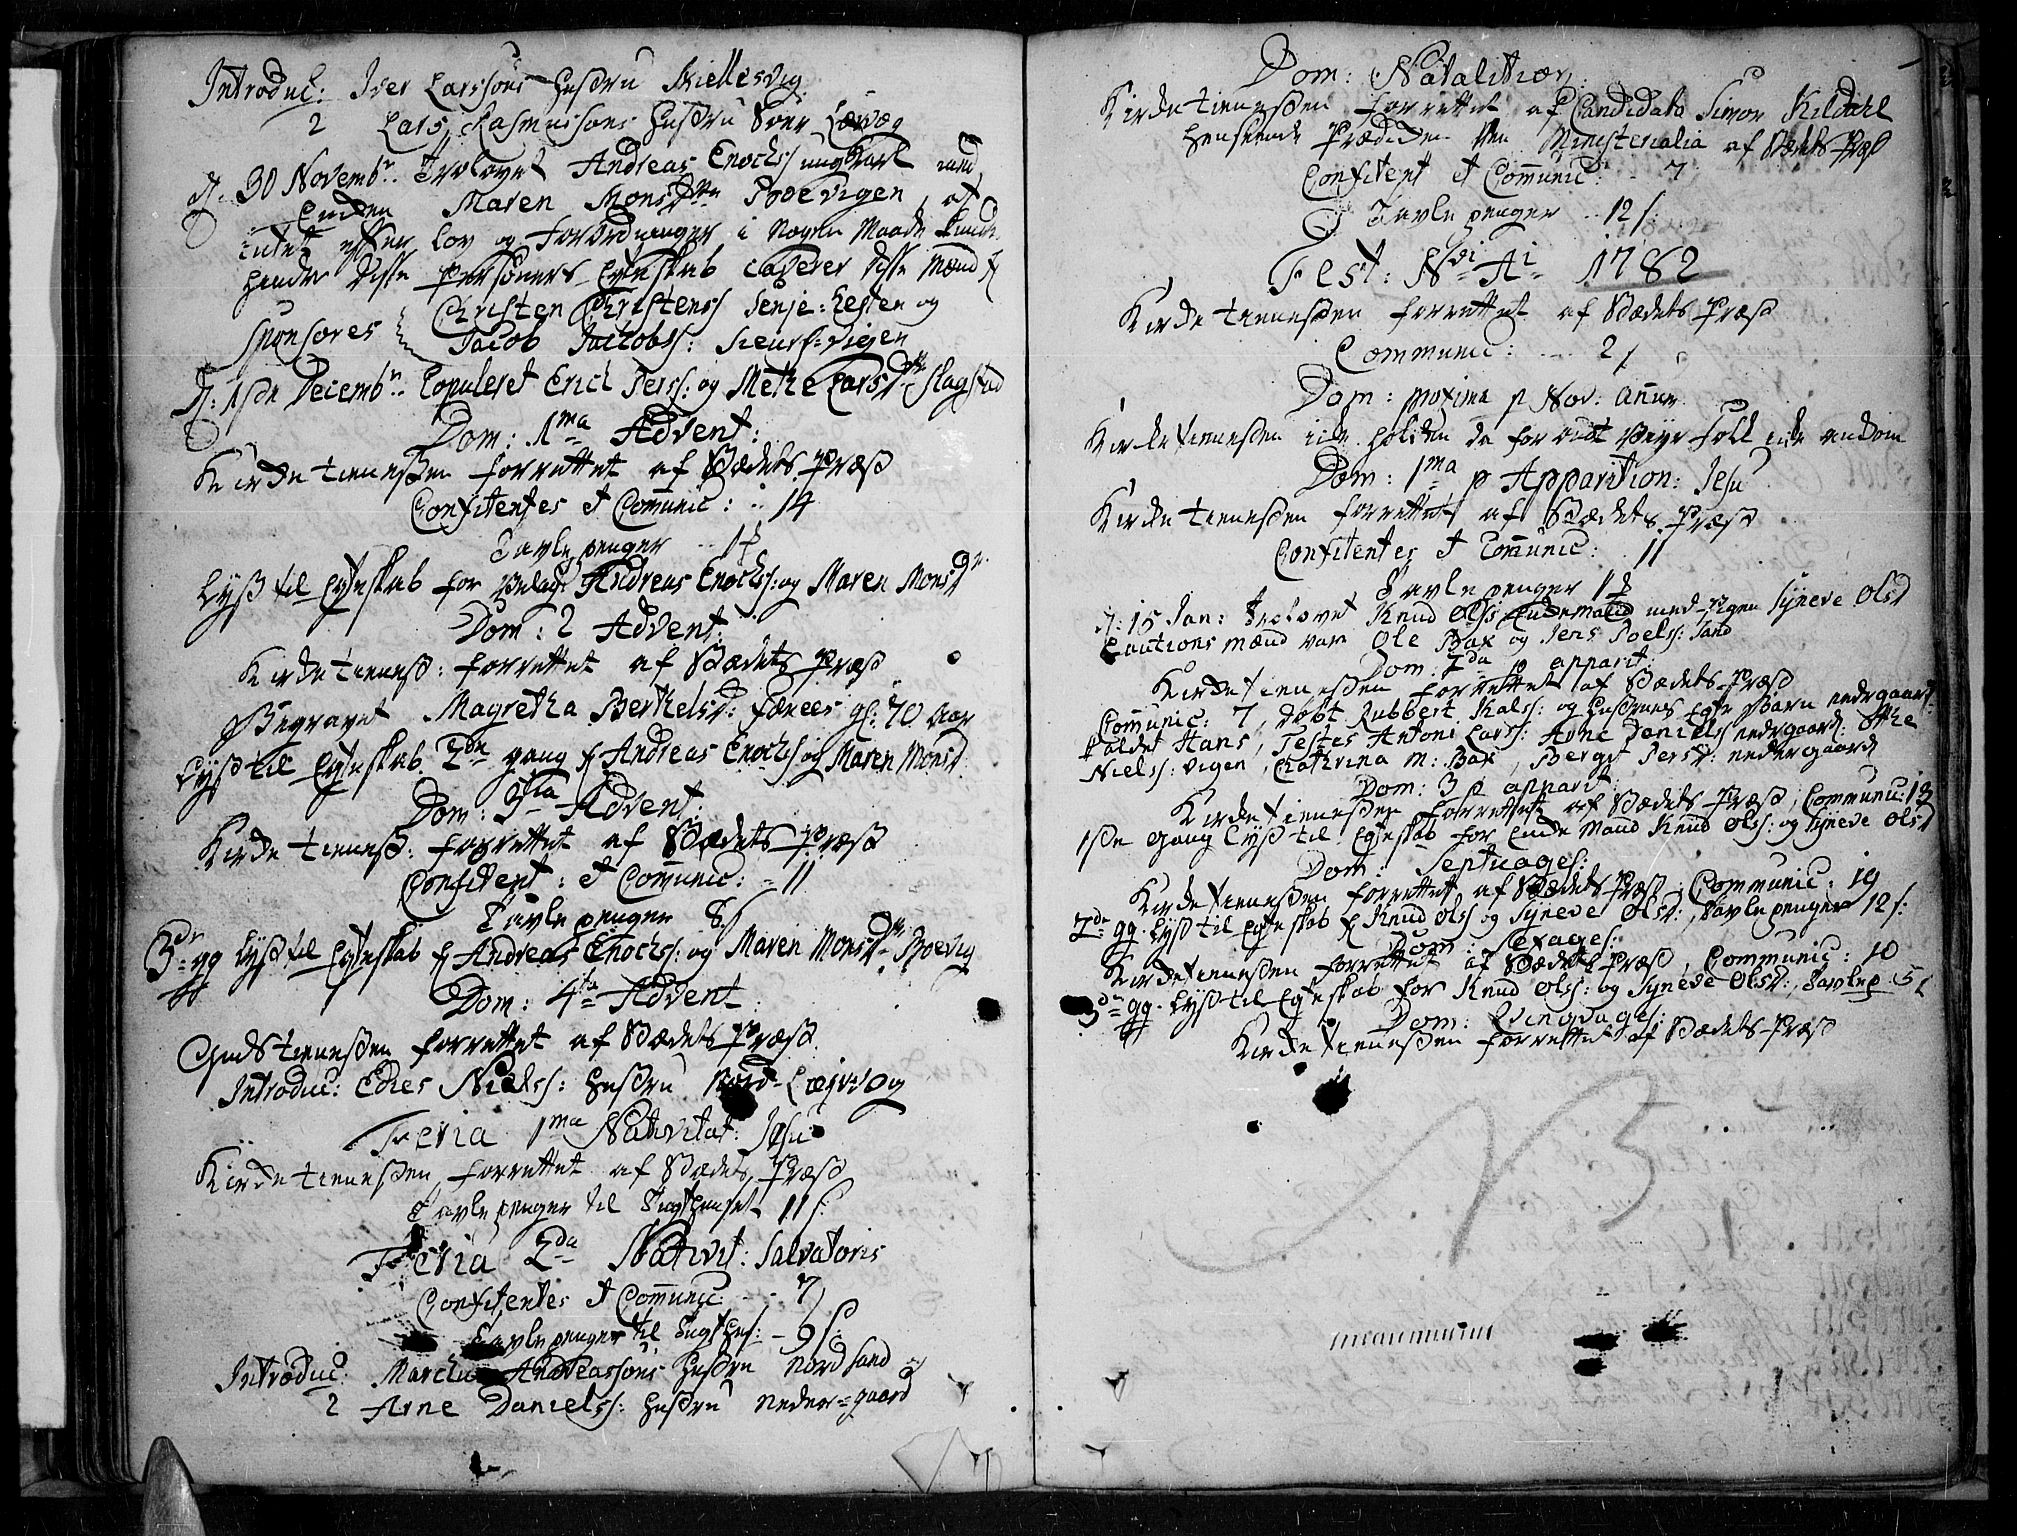 Introduc: Iver Larssøns Hustru Kiellesvig
2 Lars Rasmussøns Hustru Søer Lervog
d. 30 Novembr. Trolovet Andreas Enochs: ungKarl med
Enken Maren Monsdtr Poevigen, at
intet efter lov og Forordninger i nogen Maade kunde
hindre disse Personers Egteskab caverer disse Mænd
Sponsores Christen Christens: Senje: Lesten og
Jacob Jacobs: Vigen
d: 1ste Decembr. Copuleret Erich Pers: og Methe Larsdtr Slagstad
Dom: 1ma Advent:
Kirke tienesten forrettet af Stædets Præst
Confitentes et Com̄unic: 14
Tavle penger
Lyst til Egteskab for Andreas Enochs: og Maren Monsdtr
Dom: 2 Advent:
Kirke tienest: forrettet af Stædets Præst
Begravet Magretha Berthelsd: Færøes gl: 70 Aar
Lyst til Egteskab 2den gang f Andreas Enochs og Maren Monsd
Dom: 3tia Advent:
Kirke tienest: forrettet af Stædets Præst
Confitent: et Com̄unic: 11
Tavle penger 8 s
3die gg Lyst til Egteskab f Andreas Enochs: og Maren Monsdtr Poevig
Dom: 4ta Advent
Guds tienesten forrettet af Stædets Præst
Introduc: Edies Niels: Hustru Nord-Lervog
Feria 1ma Nativitat: Jesu
Kirke tienesten forrettet af Stædets Præst
Tavle penger til Tugthuset 11 s:
Feria 2da Nativit: Salvatoris
Confitentes et Com̄unic: 7
Tavle penger til Tugthus: 9 s:
Introduc: Marchus Andreassøns Hustru Nordsand og
2 Arne Daniels: Hustru Neder=gaard
Dom: Natalitior:
Kirke tienesten forrettet af Candidato Simon Kildahl
henseende Prædiken Men Ministerialia af Stædets Præst
Confitent et Com̄unic: 7
Tavle penger 12 s:
Fest: Ndi Ai 1782
Kirke tienesten forrettet af Stædets Præst
Communic: 2
Dom: proxima p Nov: Annum
Kirke tienesten icke holden da for ondt Veyr Folk icke ankom
Dom: 1ma p Apparition: Jesu
Kirke tienesten forrettet af Stædets Præst
Confitentes et Com̄unic: 11
Tavle penger
d: 15 Jan: trolovet Knud Ols: Enkemand med Pigen Syneve Olsd
Cautions mænd var Ole Bax og Jens Poels: Sand
Dom: 2da p apparit:
Kirke tienesten forrettet af Stædets Præst
Com̄unic: 7, døbt Rubbert Kals: og Hustrues egte Barn nedrgaard
kaldet Hans, Testes Antoni Lars: Arne Daniels nedrgaard: Otthe
Niels: Vigen, Cathrina M: Bax, Berget Persd: nedergaard
Dom: 3 p apparit:
Kirke tienesten forrettet af Stædets Præst, Communic: 13
1ste Gang Lyst til Egteskab for Enke Mand Knud Ols: og Syneve Olsd
Dom: Septuages:
Kirke tienesten forrettet af Stædets Præst, Communic: 19
2den gg. Lyst til Egteskab f Knud Ols og Syneve Olsd:, Tavle penger 12 s:
Dom: Sexages:
Kirke tienesten forrettet af Stædets Præst, Communic: 10
3die gg. Lyst til Egteskab for Knud Ols: og Syneve Olsd:, Tavle p 5 s
Dom: Qvinqvages:
Kirke tienesten forrettet af Stædets Præst
NB